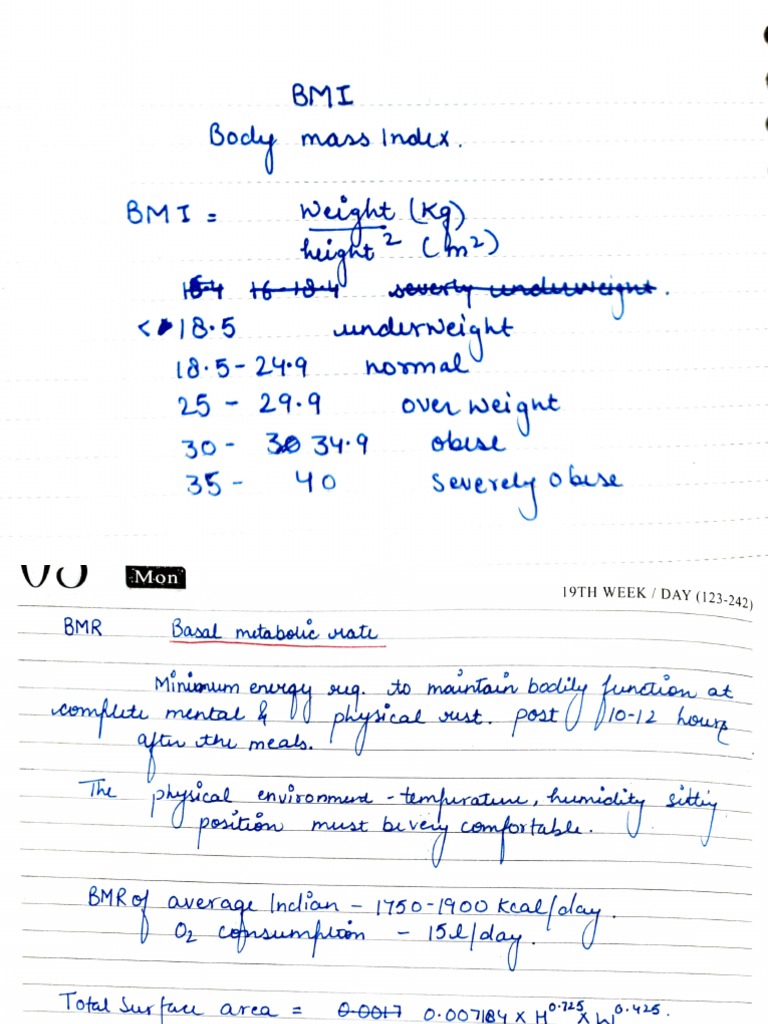 BMI
Body mass Index.
BMI = Weight (Kg)
height² (m²)
16-18.4 severly underweight.
< 18.5 underweight
18.5 - 24.9 normal
25 - 29.9 over weight
30 - 34.9 obese
35 - 40 severely obese
Mon
19TH WEEK / DAY (123-242)
BMR Basal metabolic rate
Minimum energy req. to maintain bodily function at
complete mental & physical rest. post 10-12 hours
after the meals.
The physical environment - temperature, humidity sitting
position must be very comfortable.
BMR of average Indian - 1750-1900 Kcal/day.
O₂ consumption - 15l/day.
Total Surface area = 0.0017 0.007184 x H^0.725 x W^0.425.